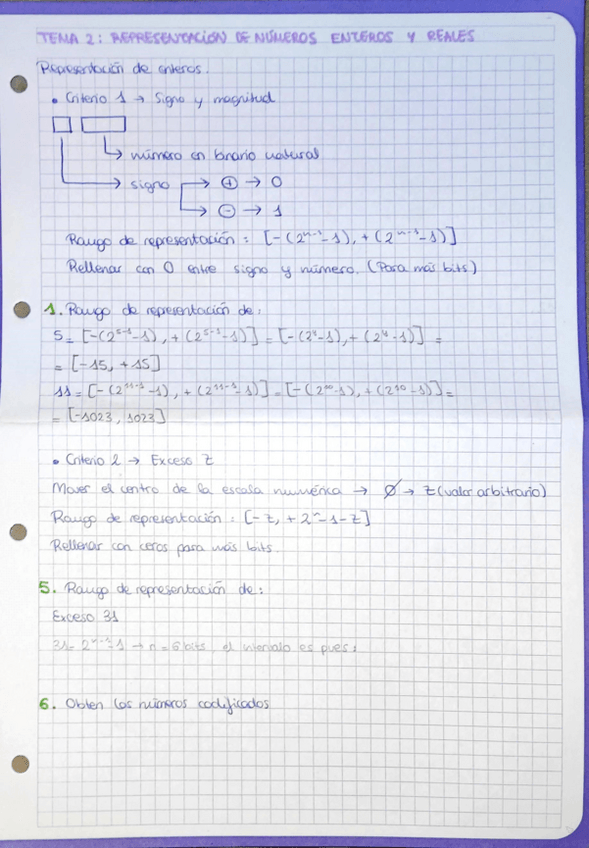 TEMA 2: REPRESENTACIÓN DE NÚMEROS ENTEROS Y REALES
Representación de enteros.
• Criterio 1 → Signo y magnitud
→ número en binario natural
→ signo → ⊕ → 0
→ ⊖ → 1
Rango de representación: [-(2ⁿ⁻¹-1), +(2ⁿ⁻¹-1)]
Rellenar con 0 entre signo y número. (Para más bits)
1. Rango de representación de:
5 = [-(2⁵⁻¹-1), +(2⁵⁻¹-1)] = [-(2⁴-1), +(2⁴-1)] =
= [-15, +15]
11 = [-(2¹¹⁻¹-1), +(2¹¹⁻¹-1)] = [-(2¹⁰-1), +(2¹⁰-1)] =
= [-1023, 1023]
• Criterio 2 → Exceso Z
Mover el centro de la escala numérica → Ø → Z (valor arbitrario)
Rango de representación: [-Z, +2ⁿ-1-Z]
Rellenar con ceros para más bits.
5. Rango de representación de:
Exceso 31
31 = 2ⁿ⁻¹-1 → n = 6 bits, el intervalo es pues:
6. Obten los números codificados